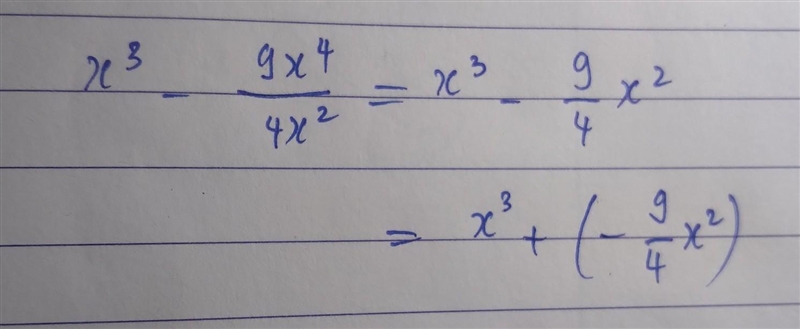 x³ - 9x⁴/4x² = x³ - 9/4 x²
= x³ + (- 9/4 x²)